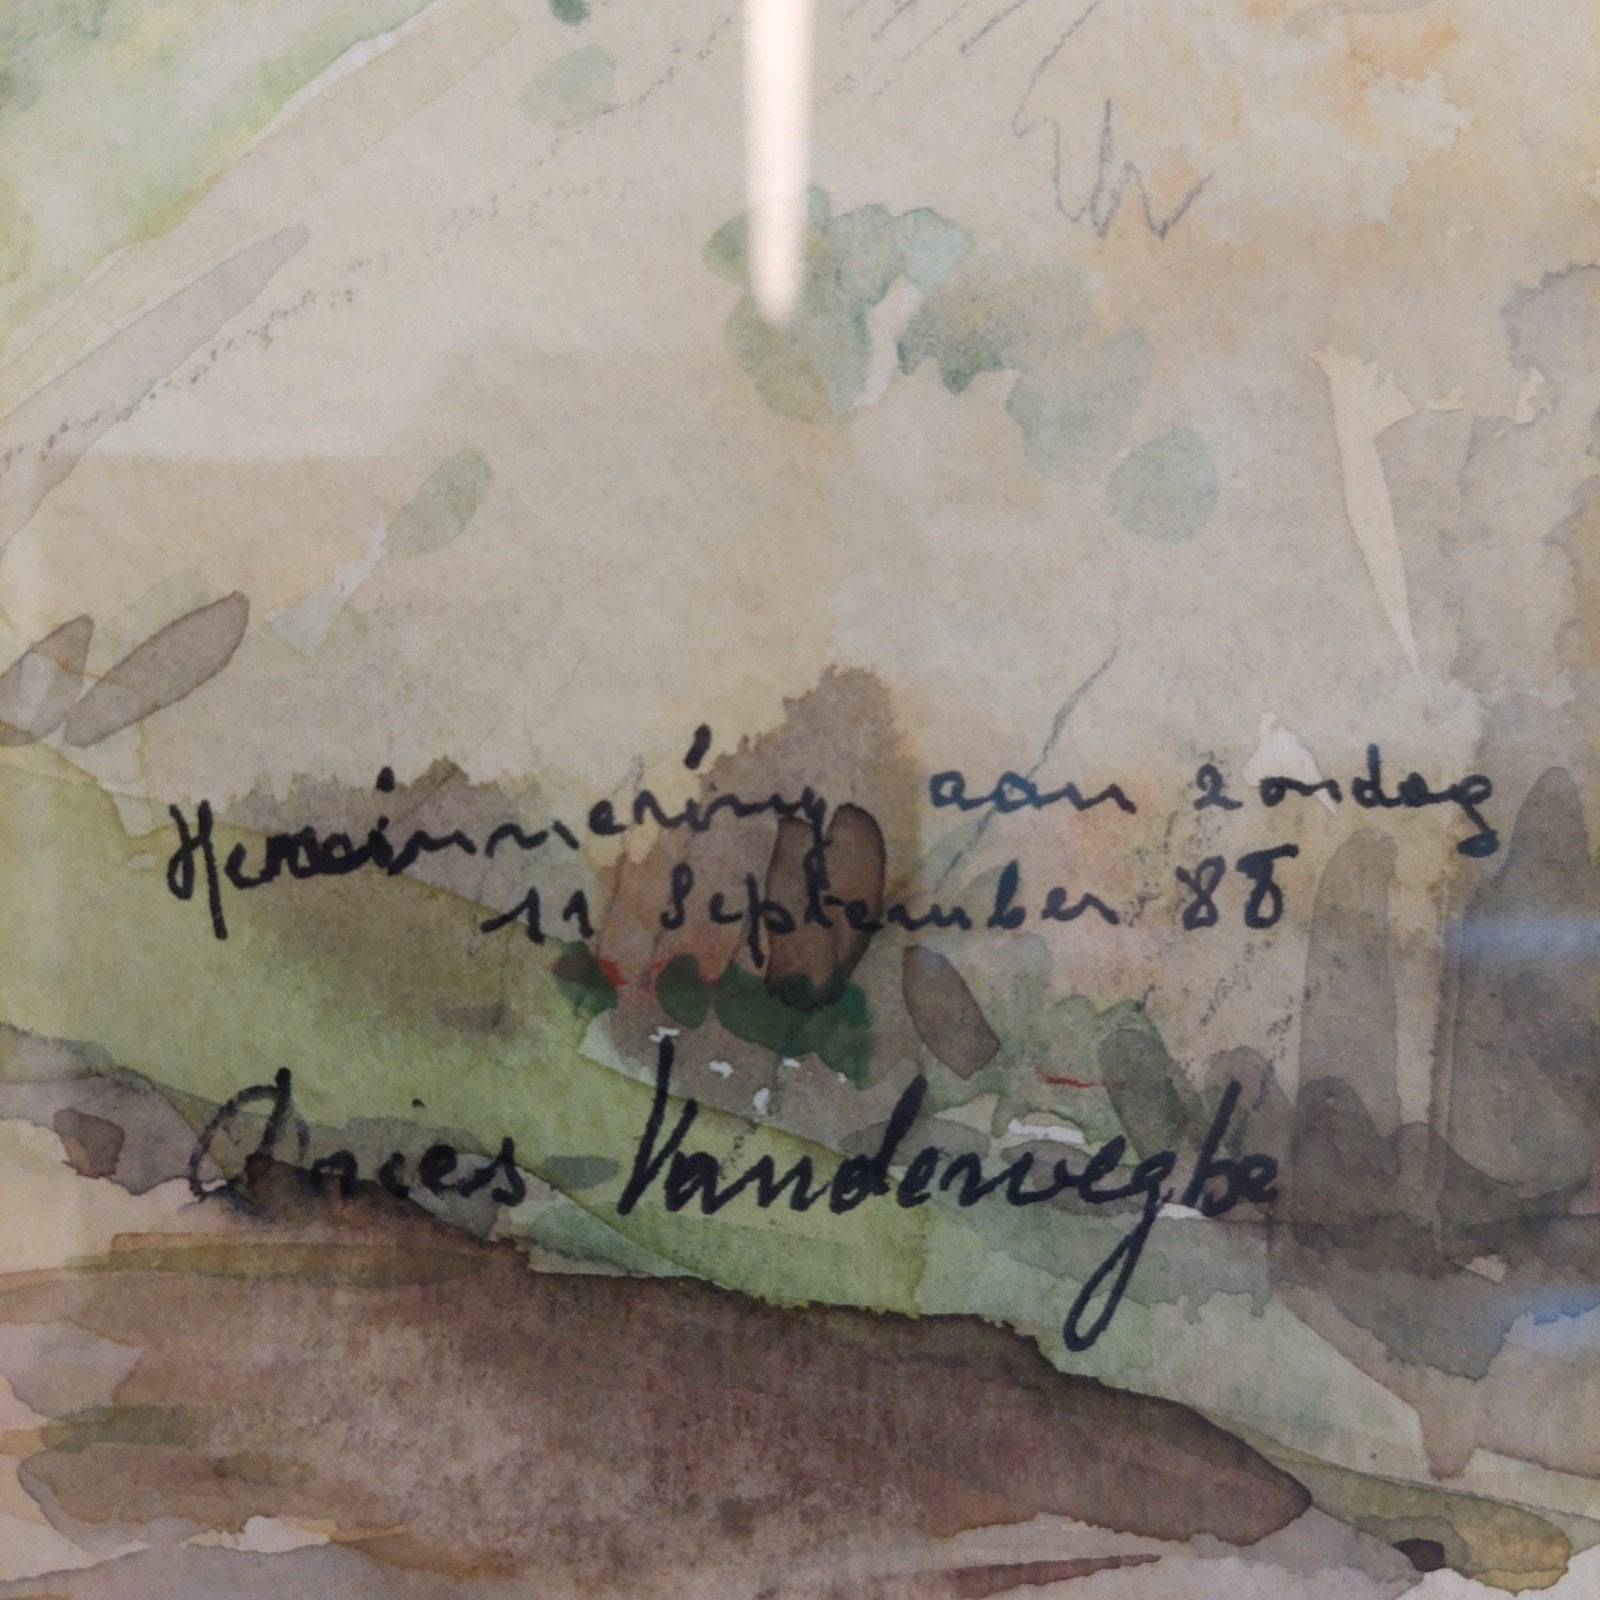 Herinnering aan zondag
11 September 88
Dries Vanderweghe